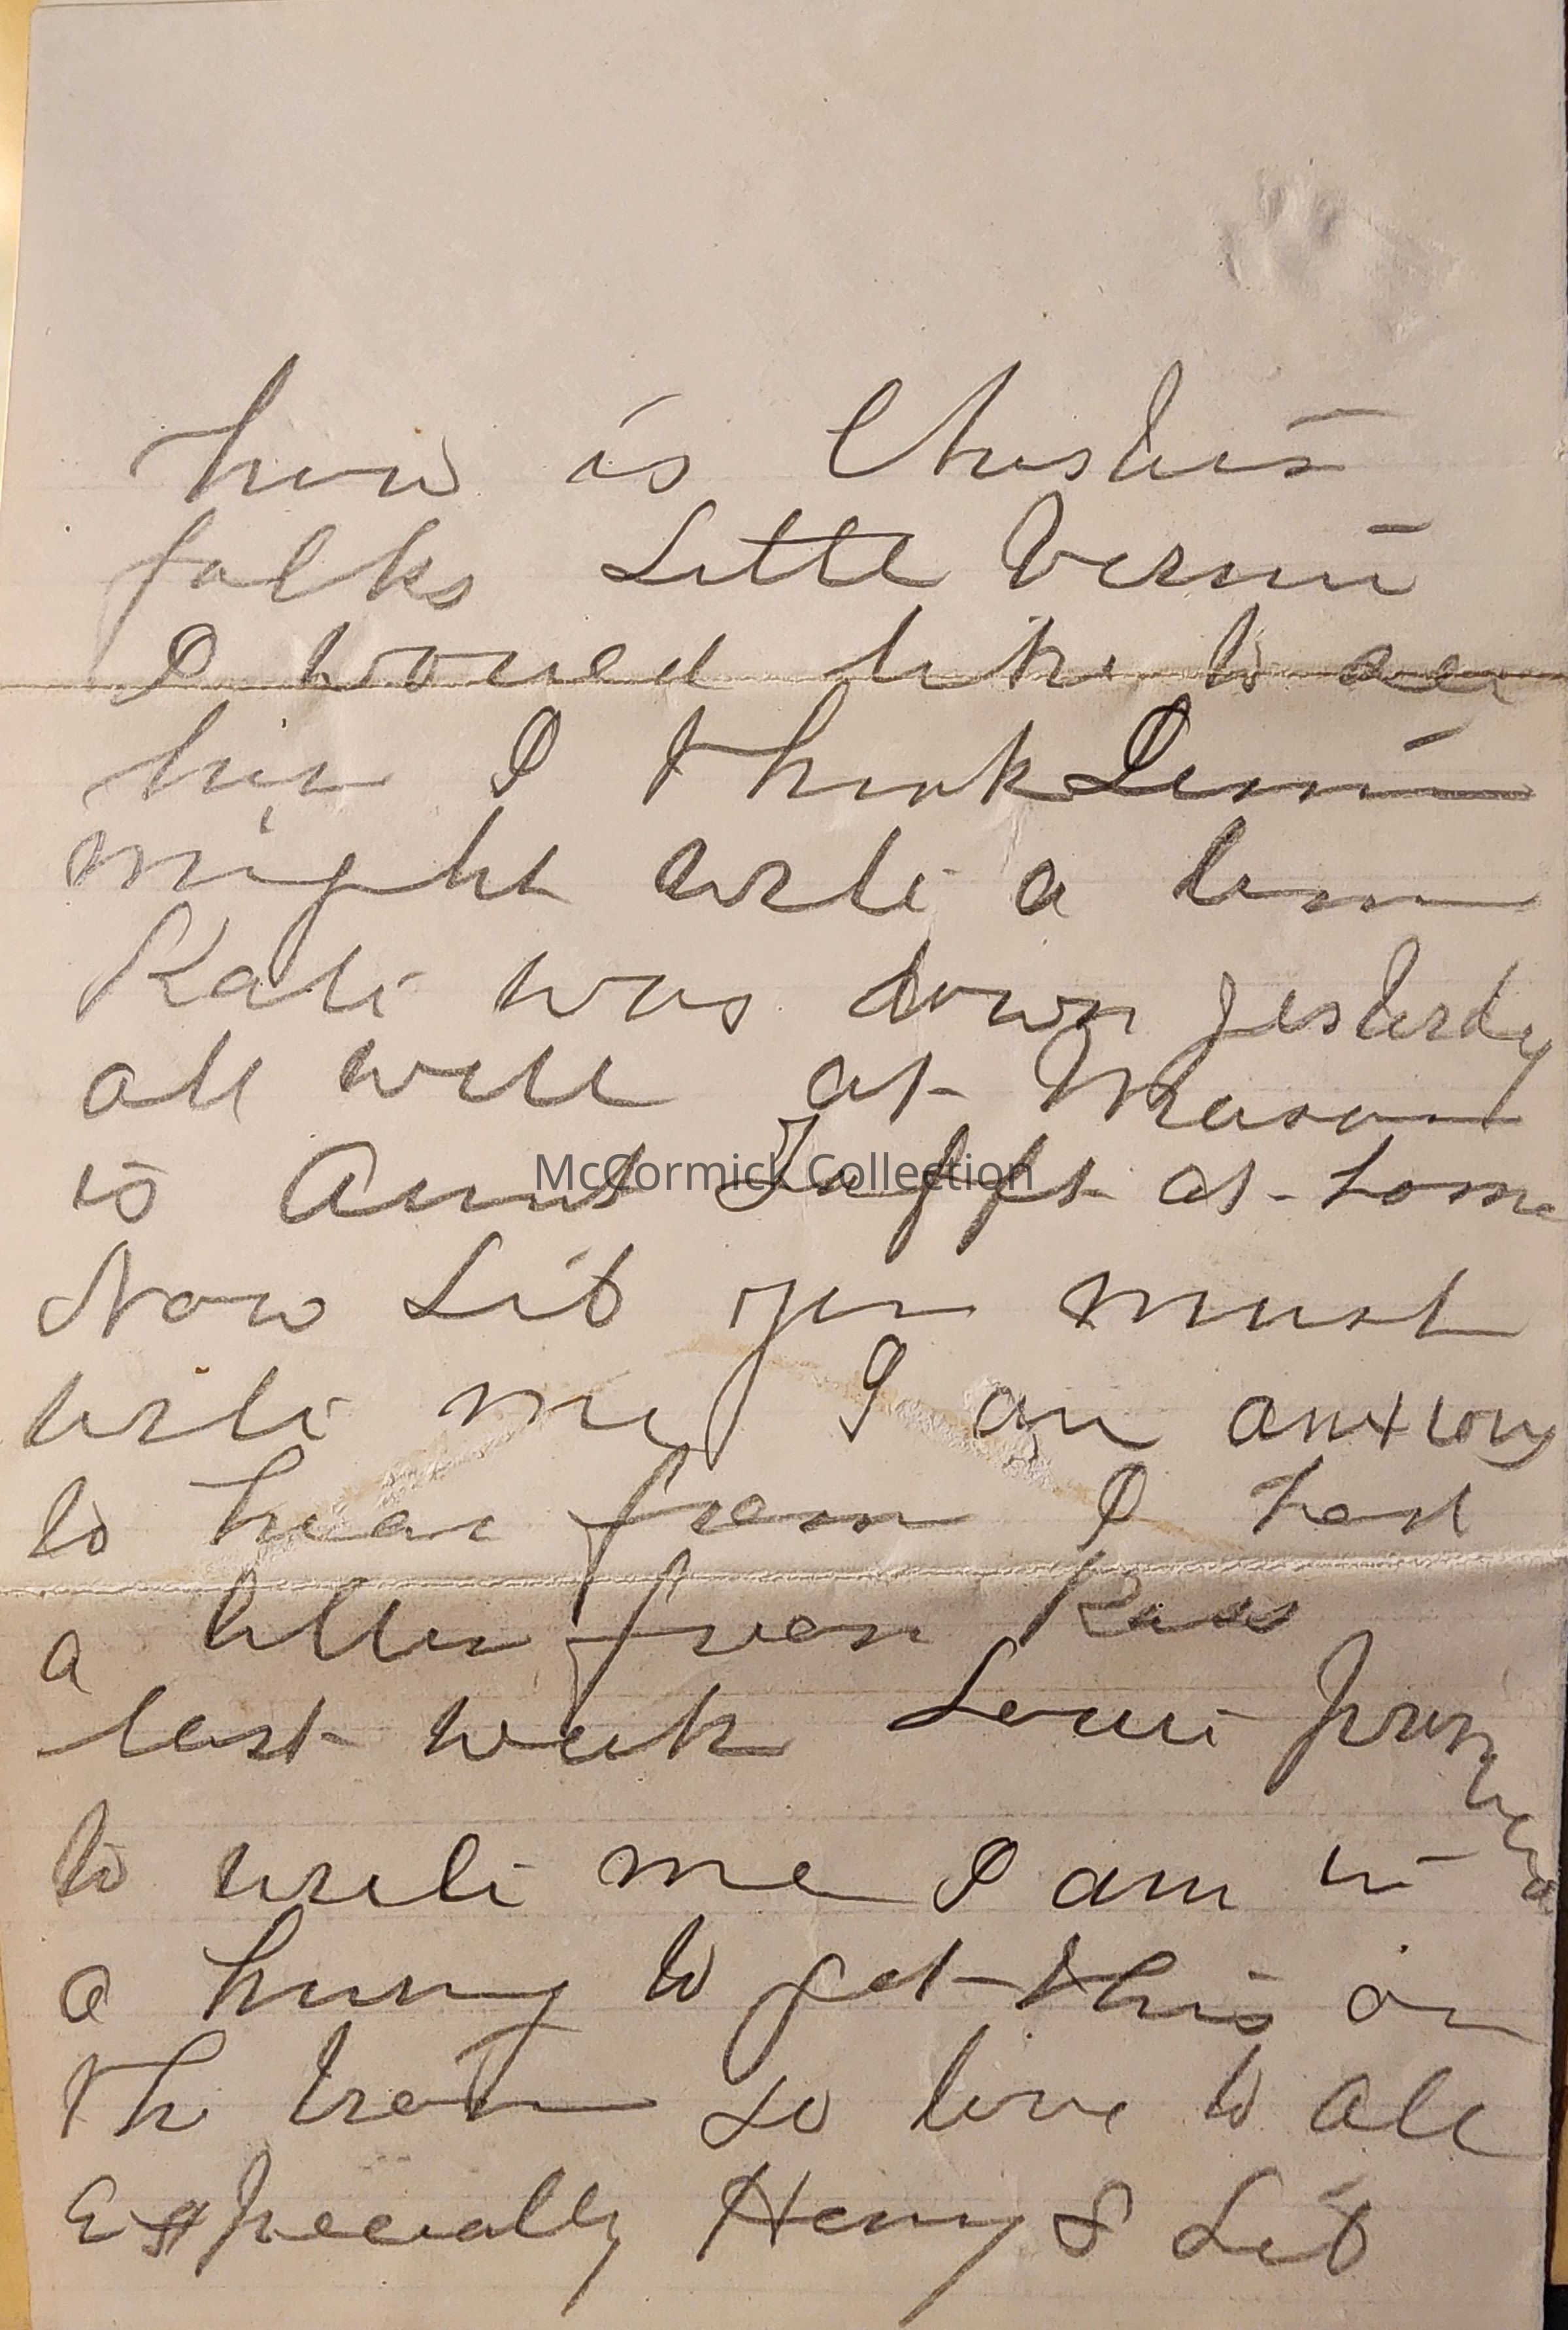 how is Christies
folks Little Vernie
I would like to see
him I think Lennie
might write a line
Kate was down yesterdy
all well at Mason
is Aunt Tafft at home
McCormick Collection
Now Lib you must
write me I am anxious
to hear from I had
a letter from Kas
last week Louie promised
to write me I am in
a hurry to get this on
the train so love to all
Especially Henry & Lib